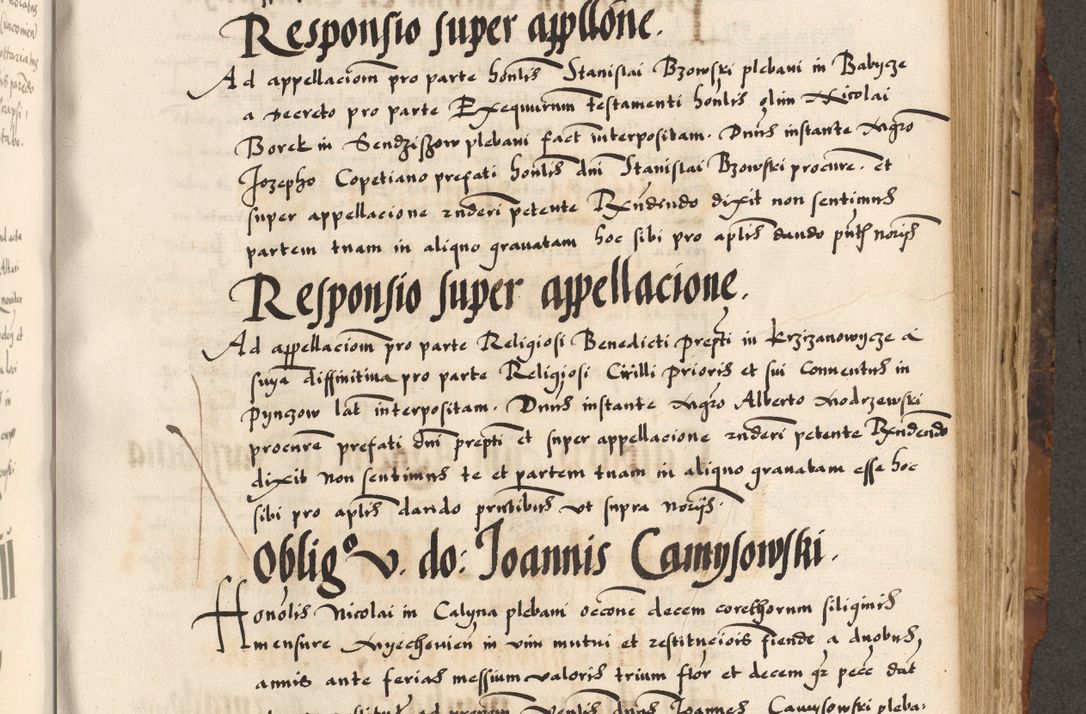 Responsio super appllõne.
Ad appellaciom pro parte honlis Stanislai Bzowski plebani in Babycze
a decreto pro parte Exequutrum testamenti honlis olim Nicolai
Borek in Sendziszow plebani fact interpositam. Dnus instante Mgro
Jozepho Copetiano prefati honlis dni Stanislai Bzowski procure. et
super appellacione rnderi petente Rndendo dixit non sentimus
partem tuam in aliquo grauatam hoc sibi pro aplis dando pntz noriis
Responsio super appellacione.
Ad appellaciom pro parte Religiosi Benedicti prepti in Krzizanowycze a
snya diffinitiua pro parte Religiosi Cirilli prioris et sui Conuentus in
Pynczow lat interpositam. Dnus instante Mgro Alberto Modrzewski
procure prefati dni prepti et super appellacione rnderi petente Rndendo
dixit non sentimus te et partem tuam in aliquo grauatam esse hoc
sibi pro aplis dando pntibus ut supra noriis.
Oblig° v. do: Joannis Camysowski.
Honolis Nicolai in Calyna plebani occone decem corethorum siliginis
mensure Myechouien in vim mutui et restituciois fiende a duobus
annis ante ferias messium valoris trium flor et decem gr pecc dat
Joannes Camysowski pleba: